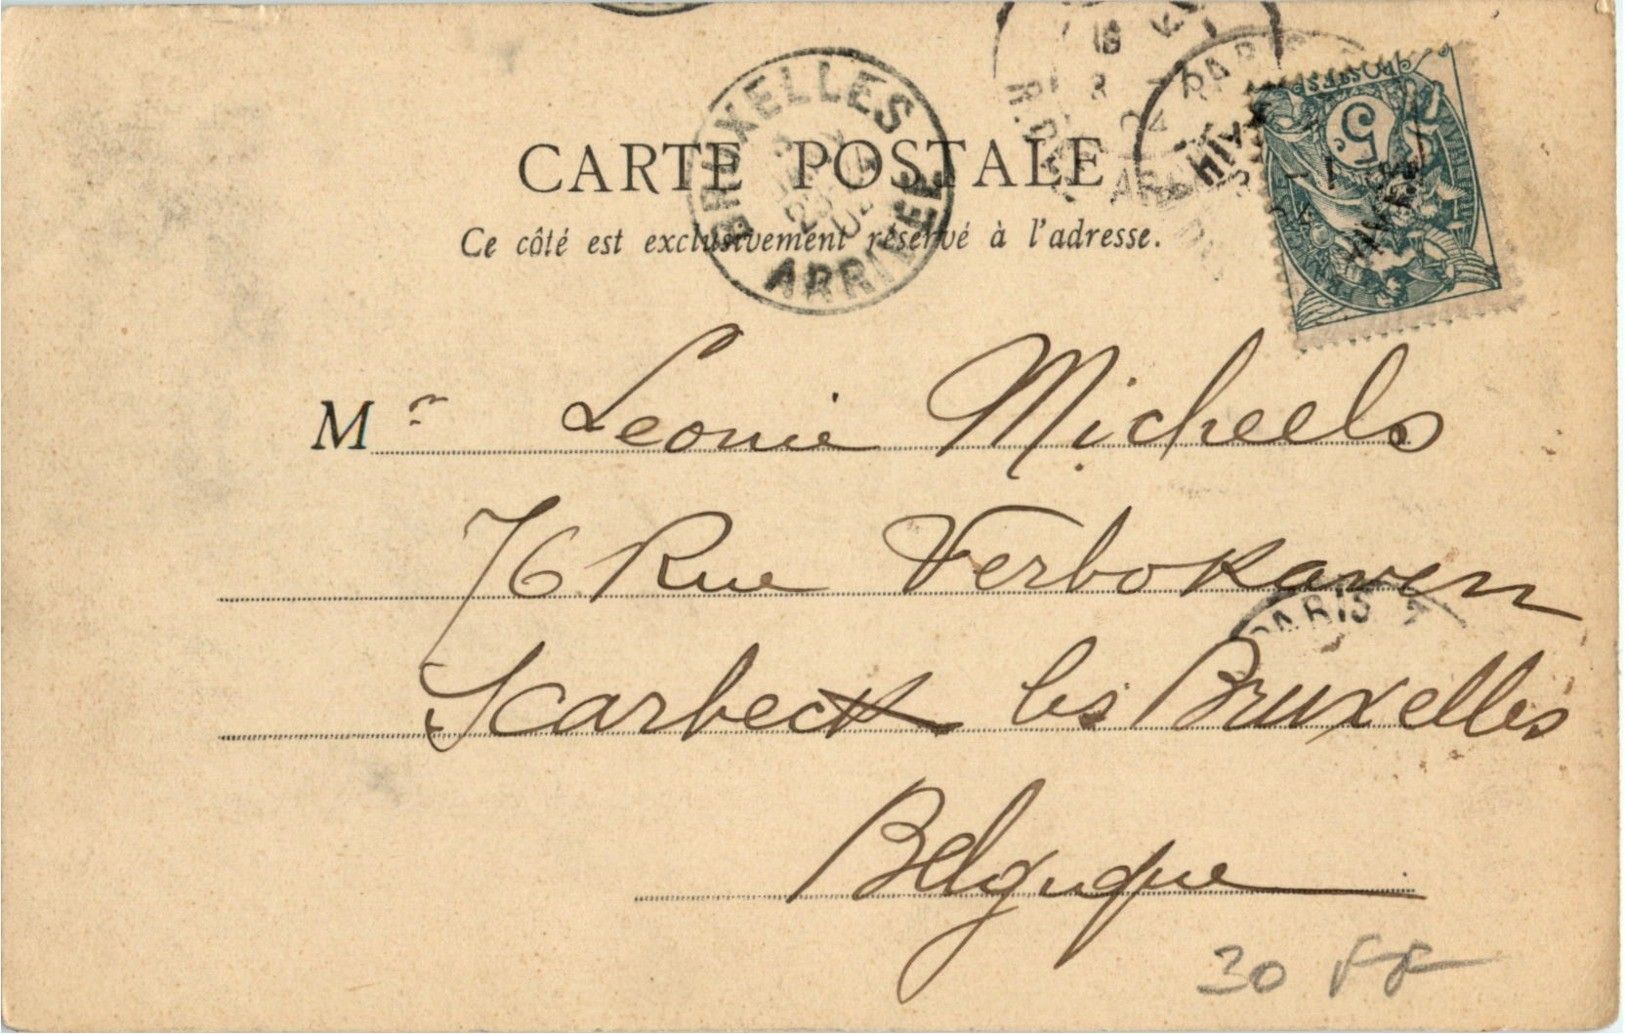 CARTE POSTALE
Ce côté est exclusivement réservé à l'adresse.
BRUXELLES
ARRIVEE
PARIS
POSTES
5
Mr Leonie Micheels
76 Rue Verbokaven
Scarbeck les Bruxelles
PARIS
Belgique
30 FF